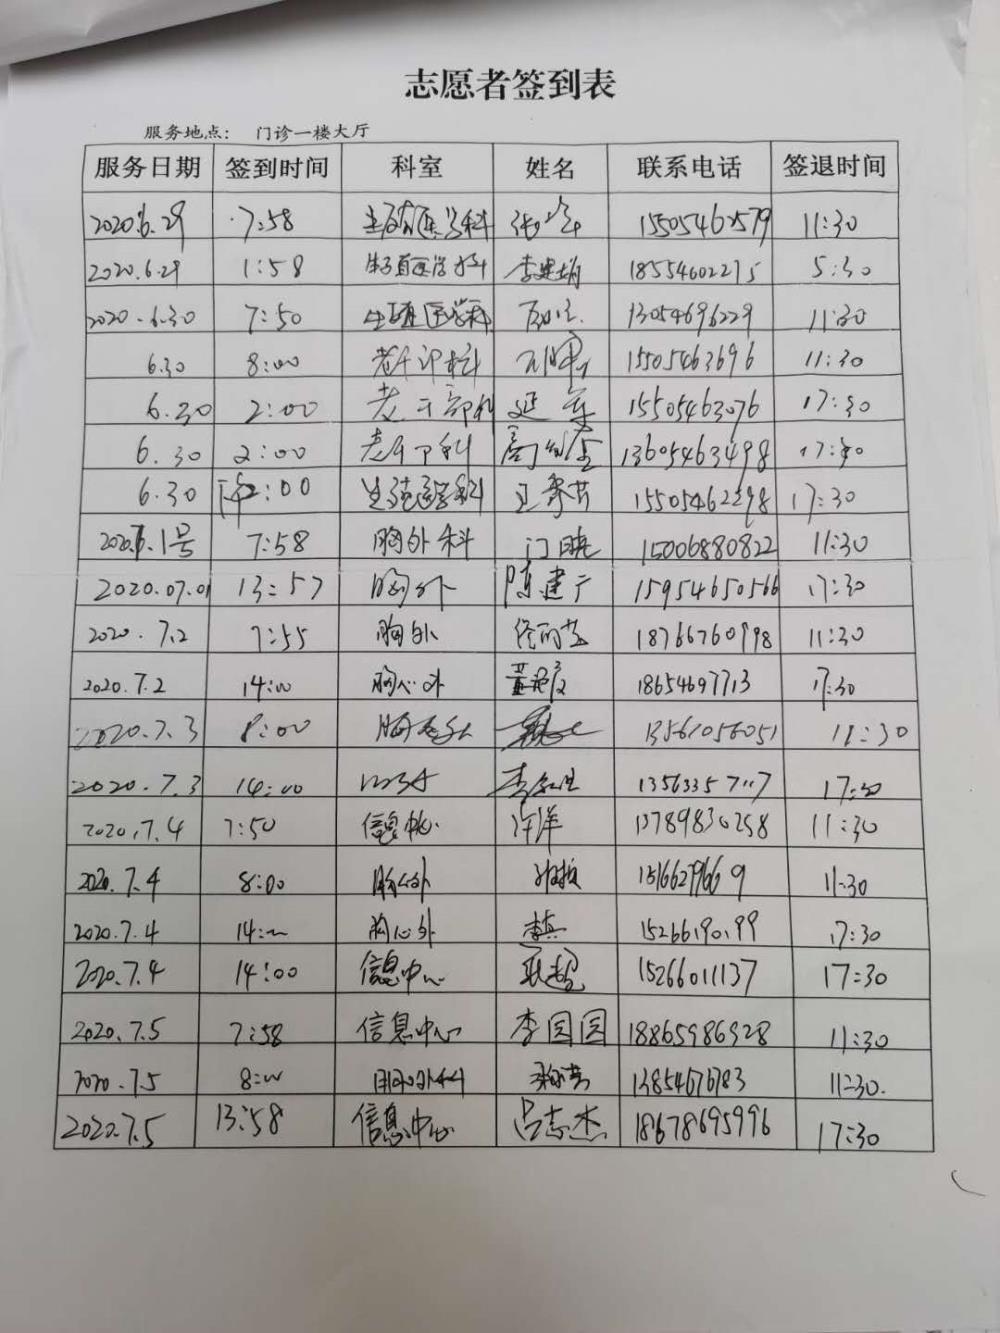 志愿者签到表
服务地点： 门诊一楼大厅
服务日期 签到时间 科室 姓名 联系电话 签退时间
2020.6.29 7:58 生殖医学科 15505462579 11:30
2020.6.29 1:58 生殖医学科 李建娟 18554602275 5:30
2020.6.30 7:50 生殖医学科 13054696229 11:30
6.30 8:00 老干部科 15505463696 11:30
6.30 2:00 老干部科 延军 15505463076 17:30
6.30 2:00 老干部科 13605463498 17:30
6.30 下午2:00 生殖医学科 王秀芹 15505462298 17:30
2020.7.1号 7:58 胸外科 门晓 15006880822 11:30
2020.07.01 13:57 胸外 陈建广 15954650566 17:30
2020.7.2 7:55 胸外 18766760998 11:30
2020.7.2 14:00 胸心外 18654697713 17:30
2020.7.3 8:00 13561056051 11:30
2020.7.3 14:00 17:30
2020.7.4 7:50 信息中心 许洋 13789830258 11:30
2020.7.4 8:00 胸心外 15166279669 11:30
2020.7.4 14:00 胸心外 李真 15266190199 17:30
2020.7.4 14:00 信息中心 耿超 15266011137 17:30
2020.7.5 7:58 信息中心 李园园 18865986328 11:30
2020.7.5 8:00 胸心外科 13854676783 11:30.
2020.7.5 13:58 信息中心 吕志杰 18678695996 17:30